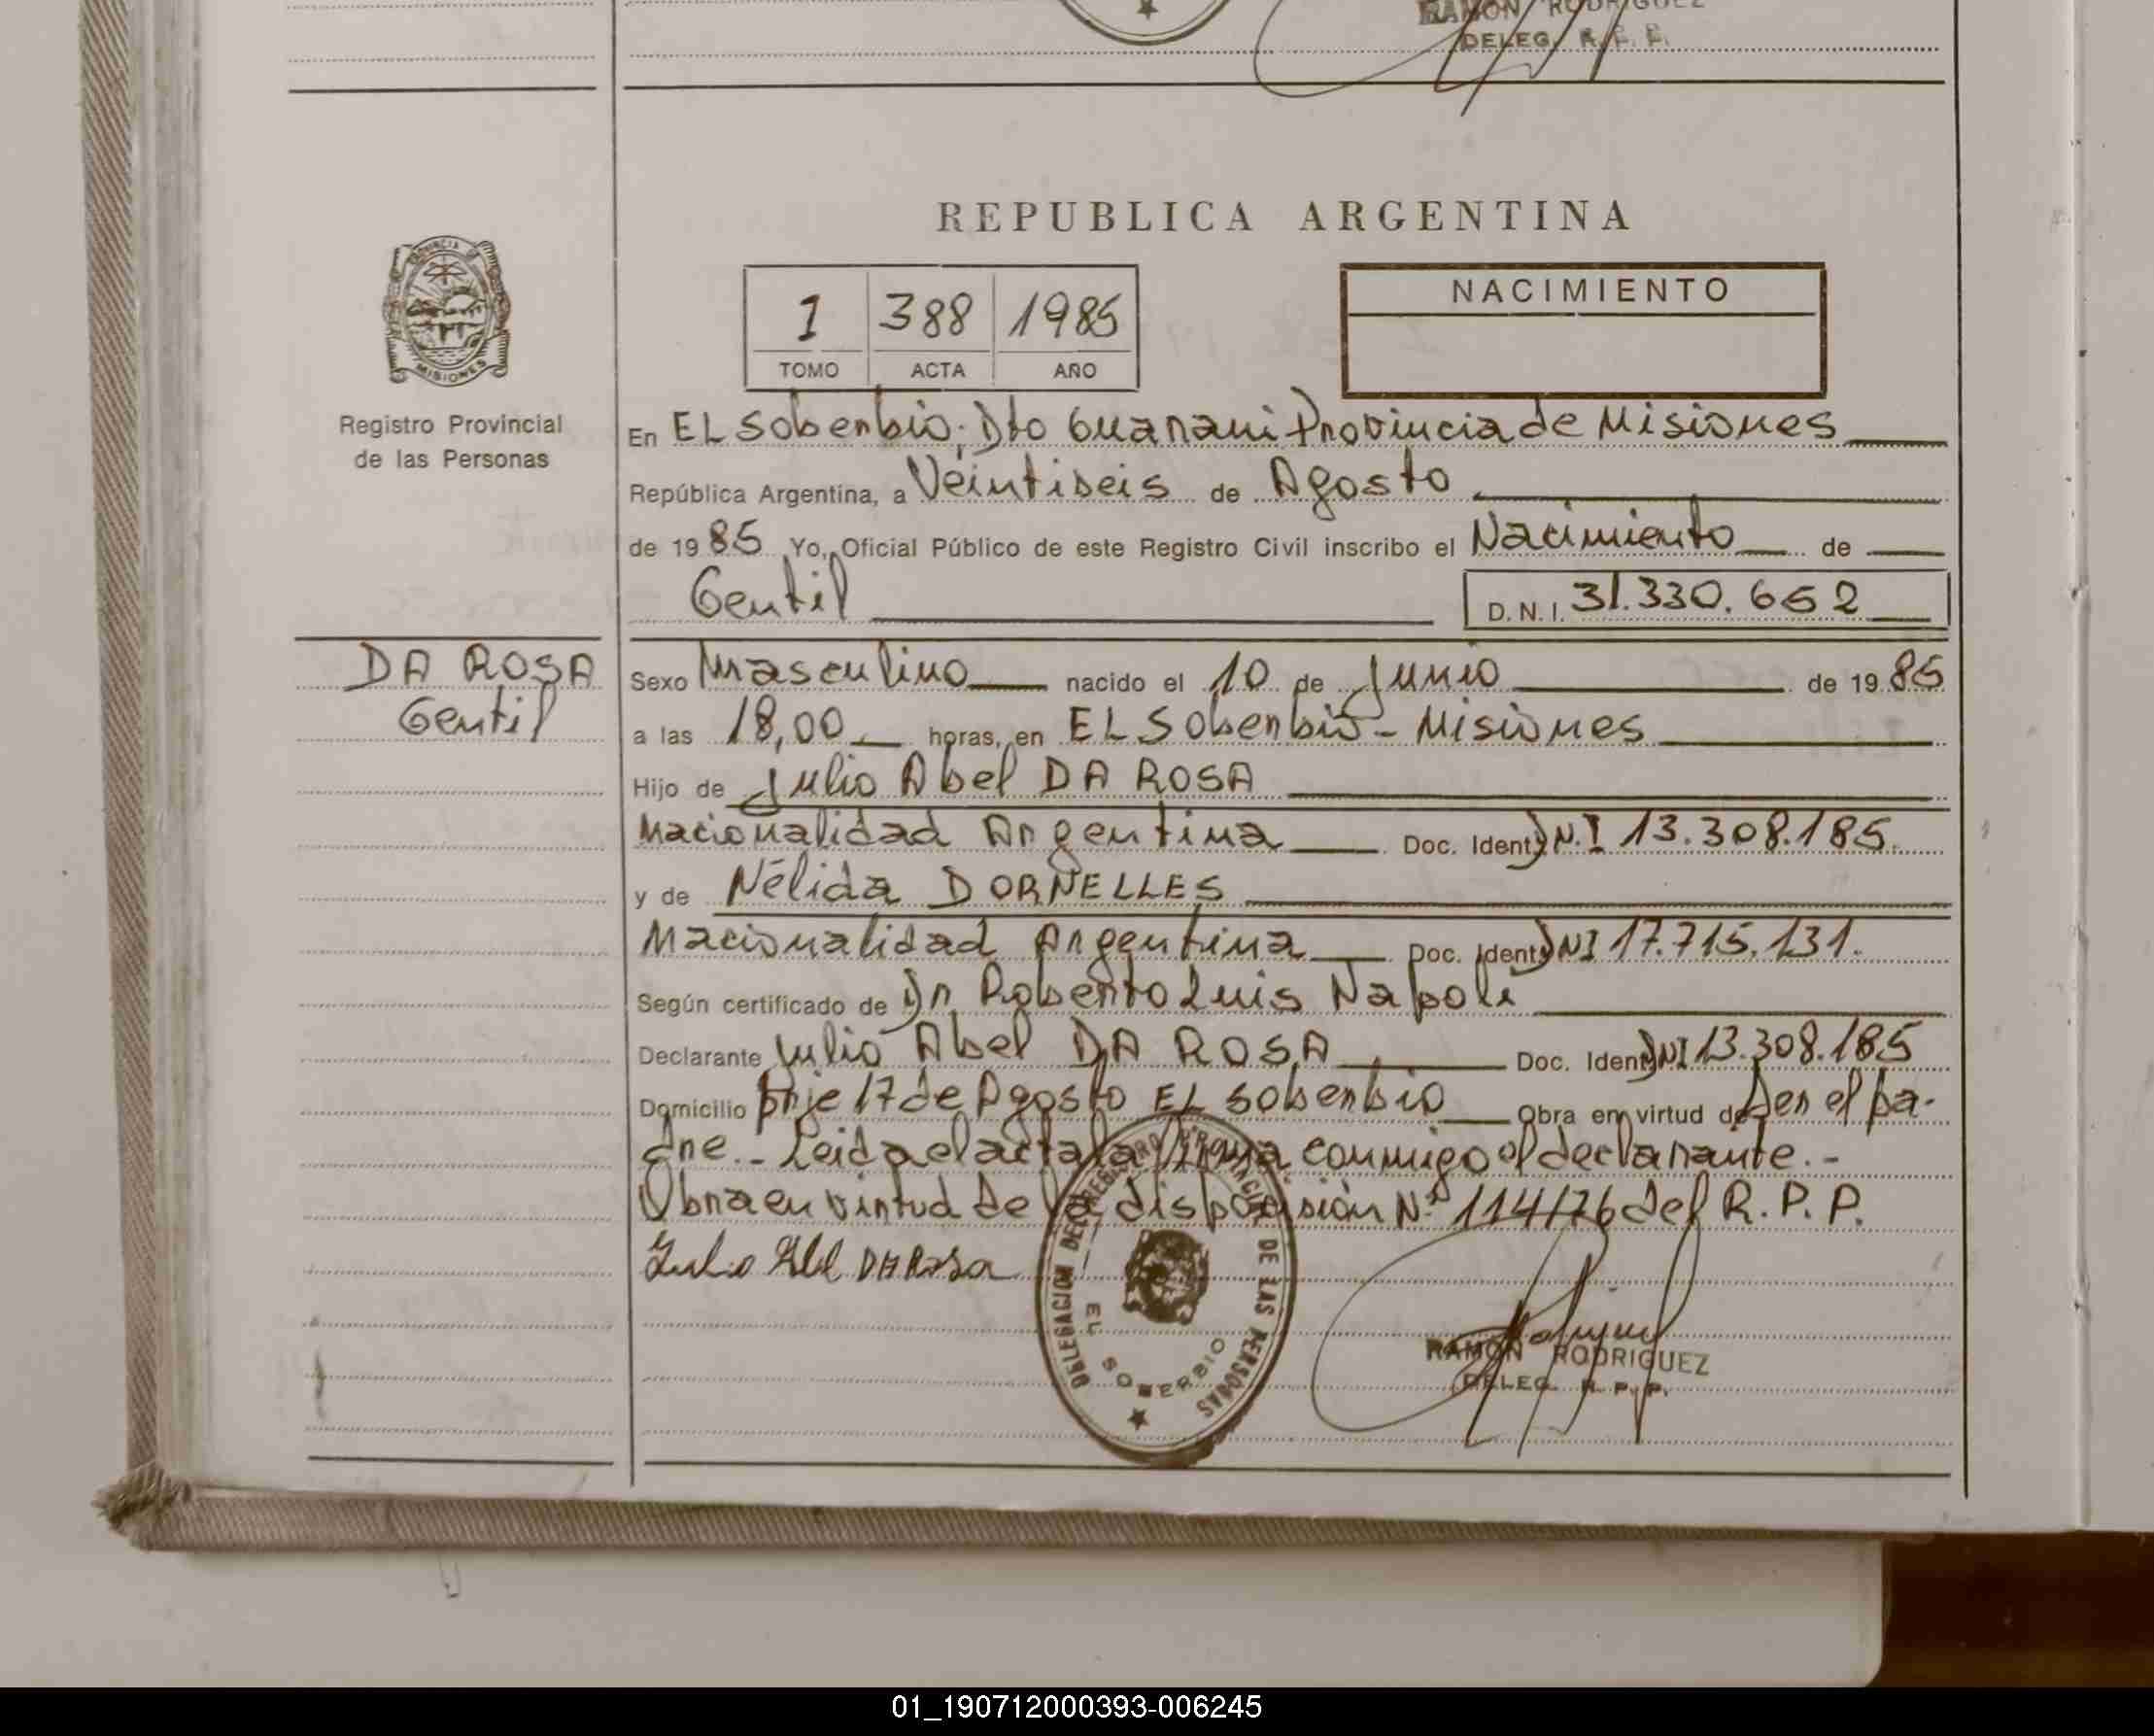 RAMON RODRIGUEZ
DELEG. R. P. P.
REPUBLICA ARGENTINA
PROVINCIA
MISIONES
1 388 1985
TOMO ACTA AÑO
NACIMIENTO
Registro Provincial
de las Personas
En EL Soberbio; Dto Guarani Provincia de Misiones
República Argentina, a Veintiseis de Agosto
de 19 85 Yo, Oficial Público de este Registro Civil inscribo el Nacimiento de
Gentil D.N.I. 31.330.652
DA ROSA
Gentil
Sexo Masculino nacido el 10 de Junio de 19 85
a las 18,00 horas, en EL Soberbio - Misiones
Hijo de Julio Abel DA ROSA
Nacionalidad Argentina Doc. Ident. DN.I 13.308.185.
y de Nélida DORNELLES
Nacionalidad Argentina Doc. Ident. DNI 17.715.131.
Según certificado de Dr Roberto Luis Napoli
Declarante Julio Abel DA ROSA Doc. Ident. DNI 13.308.185
Domicilio prje 17 de Agosto EL Soberbio Obra en virtud de Ser el pa-
dre.- Leida el acta la firma conmigo el declarante.-
Obra en virtud de la disposisión Nº 114/76 del R. P. P.
Julio Abel DA Rosa
DELEGACION DEL REGISTRO PROVINCIAL DE LAS PERSONAS
EL SOBERBIO
RAMON RODRIGUEZ
DELEG. R. P. P.
01_190712000393-006245